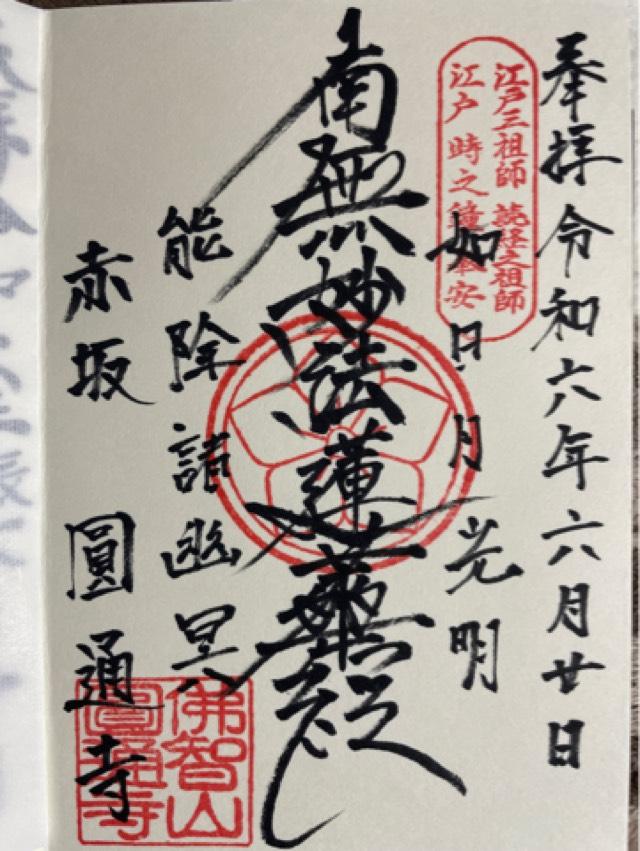 奉拝 令和六年六月廿日
江戸三祖師 読経之祖師
江戸 時之鐘奉安
如日月光明
南無妙法蓮華経
能除諸幽冥
赤坂 圓通寺
佛智山
圓通寺